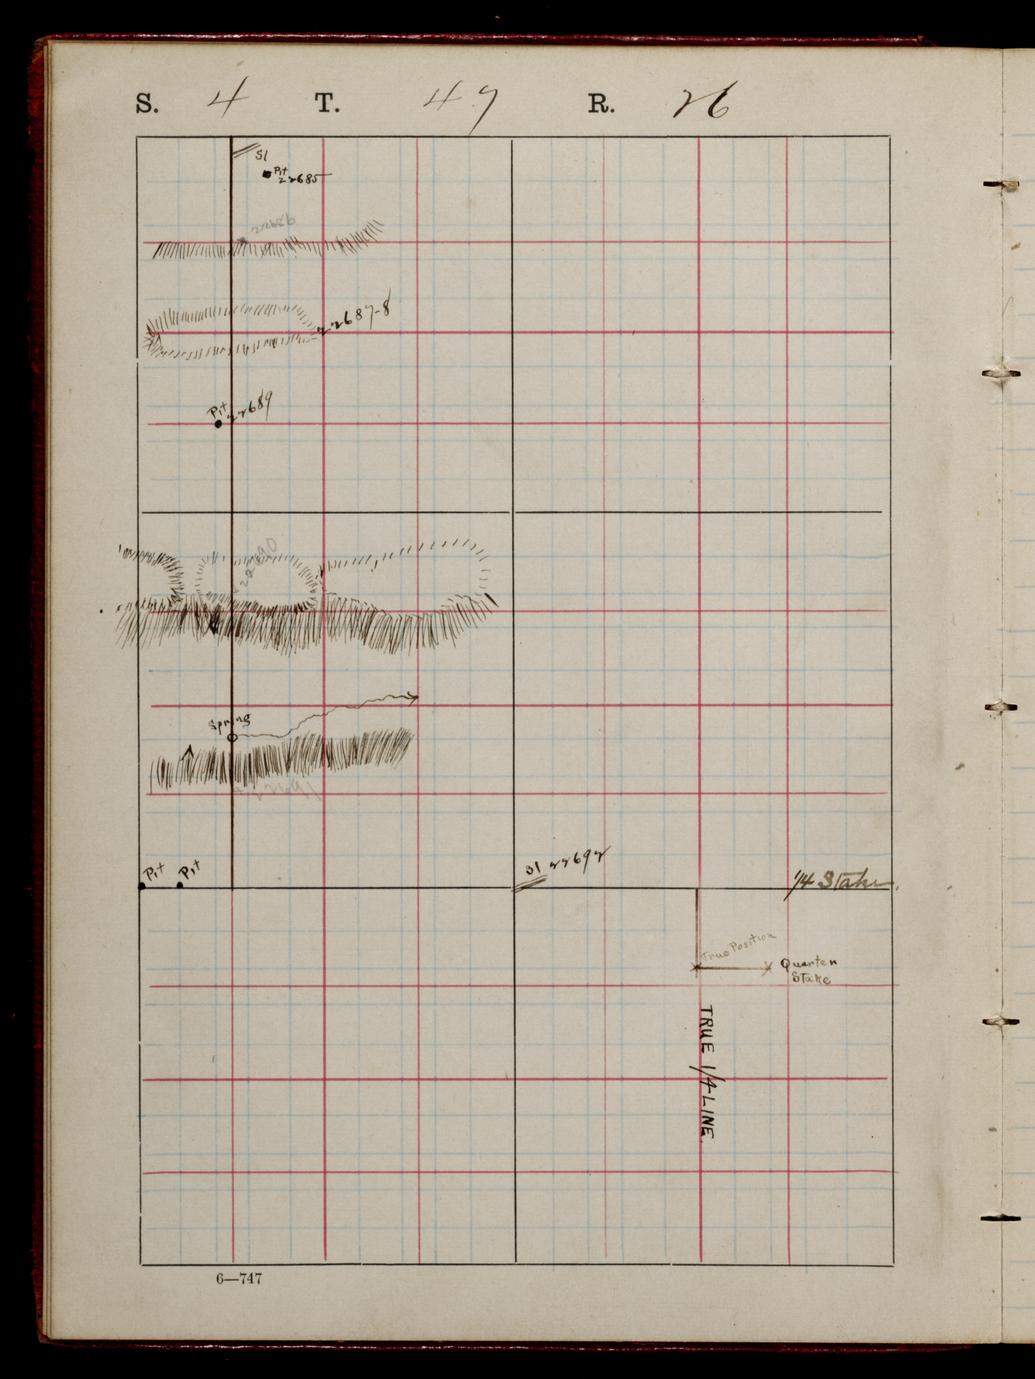 S. 4 T. 47 R. 26
Sl
Pit
22685
22686
22687-8
Pit
22689
22690
Spring
22691
Pit Pit
Sl 22692
1/4 Stake
True Position
Quarter
Stake
TRUE 1/4 LINE
6—747